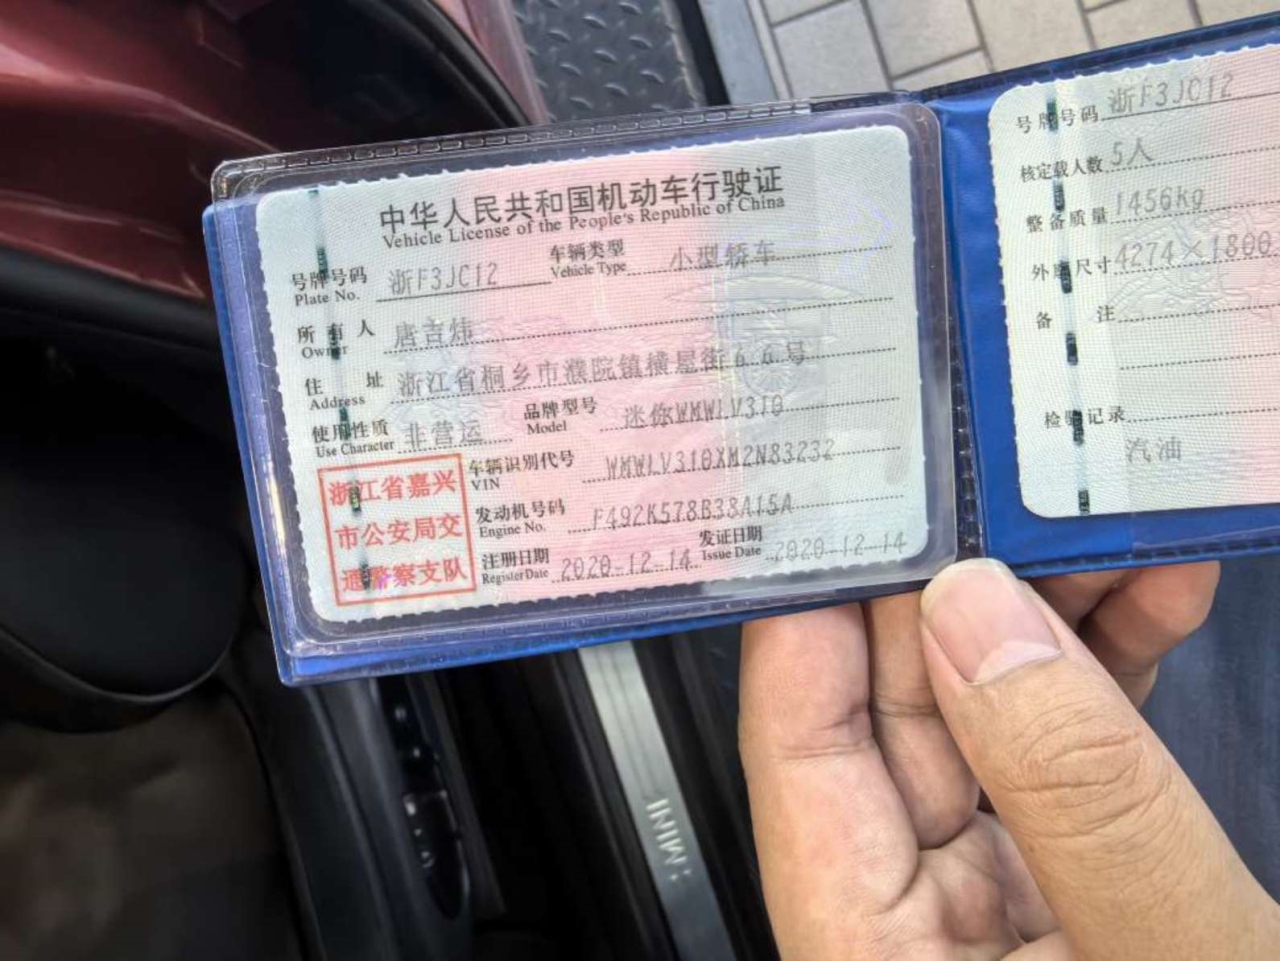 中华人民共和国机动车行驶证
Vehicle License of the People's Republic of China
号牌号码 浙F3JC12 车辆类型 小型轿车
Plate No. Vehicle Type
所有人 唐吉炜
Owner
住址 浙江省桐乡市濮院镇横屋街66号
Address
使用性质 非营运 品牌型号 迷你WMWLV310
Use Character Model
车辆识别代号 WMWLV310XM2N83232
VIN
发动机号码 F492K578B38A15A
Engine No.
注册日期 2020-12-14 发证日期 2020-12-14
Register Date Issue Date
浙江省嘉兴
市公安局交
通警察支队
号牌号码 浙F3JC12
核定载人数 5人
整备质量 1456kg
外廓尺寸 4274×1800
备注
检验记录
汽油
MINI